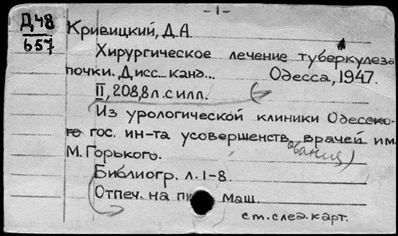 - 1 -
Д48
657
Кривицкий, Д.А.
Хирургическое лечение туберкулеза
почки. Дисс. канд... Одесса, 1947.
II, 208, 8 л. с илл.
Из урологической клиники Одесско-
го гос. ин-та усовершенств. врачей им.
(вания)
М. Горького.
Библиогр. л. 1-8.
Отпеч. на маш.
см. след. карт.